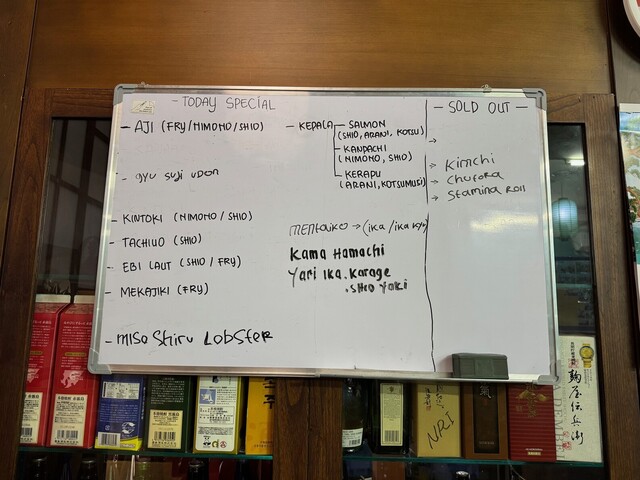 - TODAY SPECIAL
- AJI (FRY/NIMONO/SHIO)
- gyu suji udon
- KINTOKI (NIMONO/SHIO)
- TACHIUO (SHIO)
- EBI LAUT (SHIO/FRY)
- MEKAJIKI (FRY)
- miso Shiru Lobster
- KEPALA
- SALMON
(SHIO, ARANI, KOTSU)
- KANPACHI
(NIMONO, SHIO)
- KERAPU
(ARANI, KOTSUMUSI)
mentaiko → (ika/ika
Kama Hamachi
Yari Ika. Karage
. Shio Yaki
- SOLD OUT -
→
→ Kimchi
→ Chutoro
→ Stamina Roll
NRI
麹屋伝兵衛